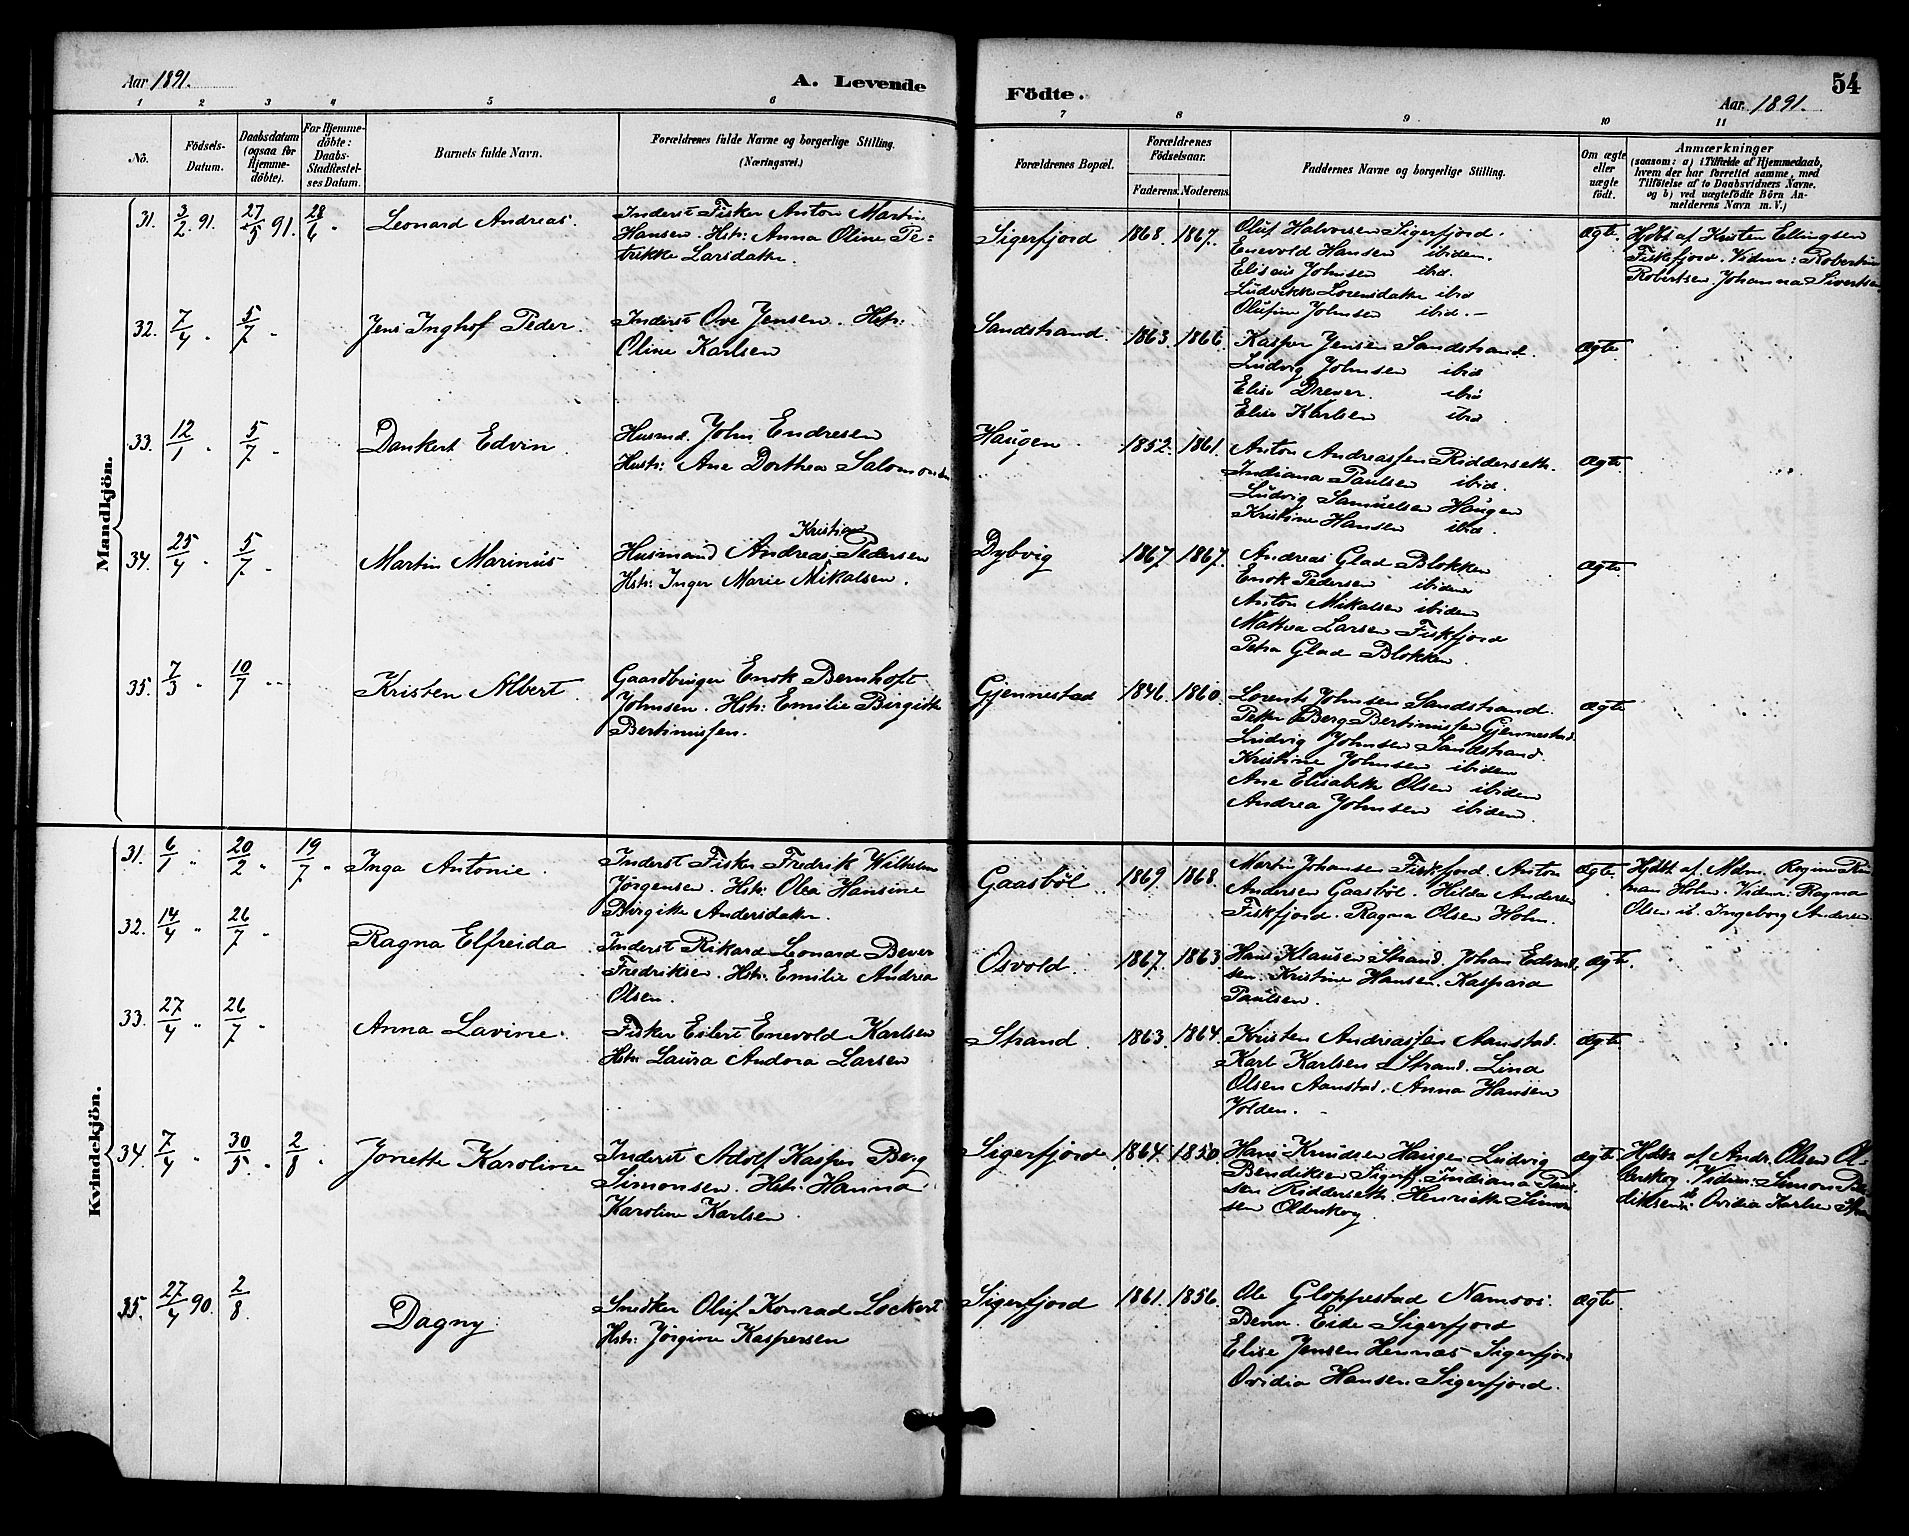 Aar 1891.
A. Levende
Födte.
54
Aar. 1891.
1 2 3 4 5 6 7 8 9 10 11
No.
Födsels-
Datum.
Daabsdatum
(ogsaa for
Hjemme-
döbte).
For Hjemme-
döbte:
Daabs-
Stadfæstel-
ses Datum.
Barnets fulde Navn.
Forældrenes fulde Navne og borgerlige Stilling.
(Næringsvei.)
Forældrenes Bopæl.
Forældrenes
Födselsaar.
Faderens. Moderens.
Faddernes Navne og borgerlige Stilling.
Om ægte
eller
uægte
födt.
Anmærkninger
(saasom: a) i Tilfælde af Hjemmedaab,
hvem der har forrettet samme, med
Tilföielse af to Daabsvidners Navne.
og b) ved uægtefödte Börn An-
melderens Navn m. V.)
Mandkjön.
31. 3/2 91. 27/5 91. 28/6 "
Leonard Andreas.
Inderst Fisker Anton Martin
Hansen. Hstr: Anna Oline Pe-
trikke Larsdatter.
Sigerfjord 1868. 1867.
Oluf Halvorsen Sigerfjord.
Enevold Hansen ibidem.
Elisæus Johnsen ibd.
Ludvikke Lorensdatter ibd
Olufine Johnsen ibid. –
ægte.
Hjdbt af Kristen Ellingsen
Fiskfjord. Vidner: Robertine
Robertsen. Johanna Sivertsen
32. 7/4 " 5/7 "
Jens Inghof Peder.
Inderst Ove Jensen. Hstr:
Oline Karlsen
Sandstrand. 1863. 1866.
Kasper Jensen Sandstrand.
Ludvig Johnsen ibid
Elise Drever. ibd
Elise Karlsen ibd
ægte
33. 12/1 " 5/7 "
Dankert Edvin.
Husmd. John Endresen
Hustr: Ane Dorthea Salomonsen
Haugen. 1852. 1861.
Anton Andreassen Ridderseth.
Indiana Paulsen ibid.
Ludvig Samuelsen Haugen
Kristine Hansen ibd.
ægte.
34. 25/4 " 5/7 "
Martin Marinus
Kristian
Husmand Andreas Pedersen
Hstr: Inger Marie Mikalsen.
Dybvig 1867. 1867.
Andreas Glad Blokken
Enok Pedersen ibidem
Anton Mikalsen ibidem
Mathea Larsen Fiskfjord
Petra Glad Blokken.
ægte.
35. 7/3 " 10/7 "
Kristen Albert.
Gaardbruger Enok Bernhoft
Johnsen. Hstr: Emilie Birgitte
Bertinussen.
Gjennestad 1846. 1860.
Lorents Johnsen Sandstrand.
Petter Berg Bertinussen Gjennestad.
Ludvig Johnsen Sandstrand.
Kristine Johnsen ibidem
Ane Elisabeth Olsen ibidem
Andrea Johnsen ibidem.
ægte
Kvindekjön.
31. 6/1 " 20/2 " 19/7 "
Inga Antonie.
Inderst Fisker Fredrik Wilhelm
Jørgensen. Hstr: Olea Hansine
Birgitte Andersdatter.
Gaasbøl 1869. 1868.
Martin Johansen Fiskfjord. Anton
Andersen Gaasbøl. Hilda Andersen
Fiskfjord. Ragna Olsen Holm.
ægte.
Hjdbt. af Mdm. Regine
Holm. Vidner: Ragna
Olsen ib. Ingeborg Andersen
32. 14/4 " 26/7 "
Ragna Elfreida
Inderst Rikard Leonard Bever
Fredriksen. Hstr: Emilie Andrea
Olsen.
Osvold 1867. 1863.
Hans Klausen Strand. Johan Edvard-
sen. Kristine Hansen. Kaspara
Paulsen.
ægte.
33. 27/4 " 26/7 "
Anna Lavine.
Fisker Eilert Enevold Karlsen
Hstr: Laura Andora Larsen
Strand. 1863. 1864.
Kristen Andreassen Aanstad.
Karl Karlsen Strand. Lina
Olsen Aanstad. Anna Hansen
Volden. –
ægte
34. 7/4 " 30/5 " 2/8 "
Jonette Karoline
Inderst Adolf Kasper Berg
Simonsen. Hstr: Hanna
Karoline Karlsen.
Sigerfjord 1864. 1850.
Hans Knudsen Haugen. Ludvig
Bendiksen Sigerf. Indiana Paul-
sen Ridderseth. Henrikke Simon
sen Olderskog.
ægte
Hjdbt. af Andr. Olsen Ol-
derskog. Vidner: Simon
diksen ib. Ovidia Karlsen
35. 27/4 90. 2/8
Dagny.
Snedker Oluf Konrad Lockert
Hstr: Jørgine Kaspersen
Sigerfjord 1861. 1856.
Ole Gloppestad Namsos.
Benn. Eide Sigerfjord
Elise Jensen Hennæs Sigerfjord
Ovidia Hansen Sigerfjord.
ægte